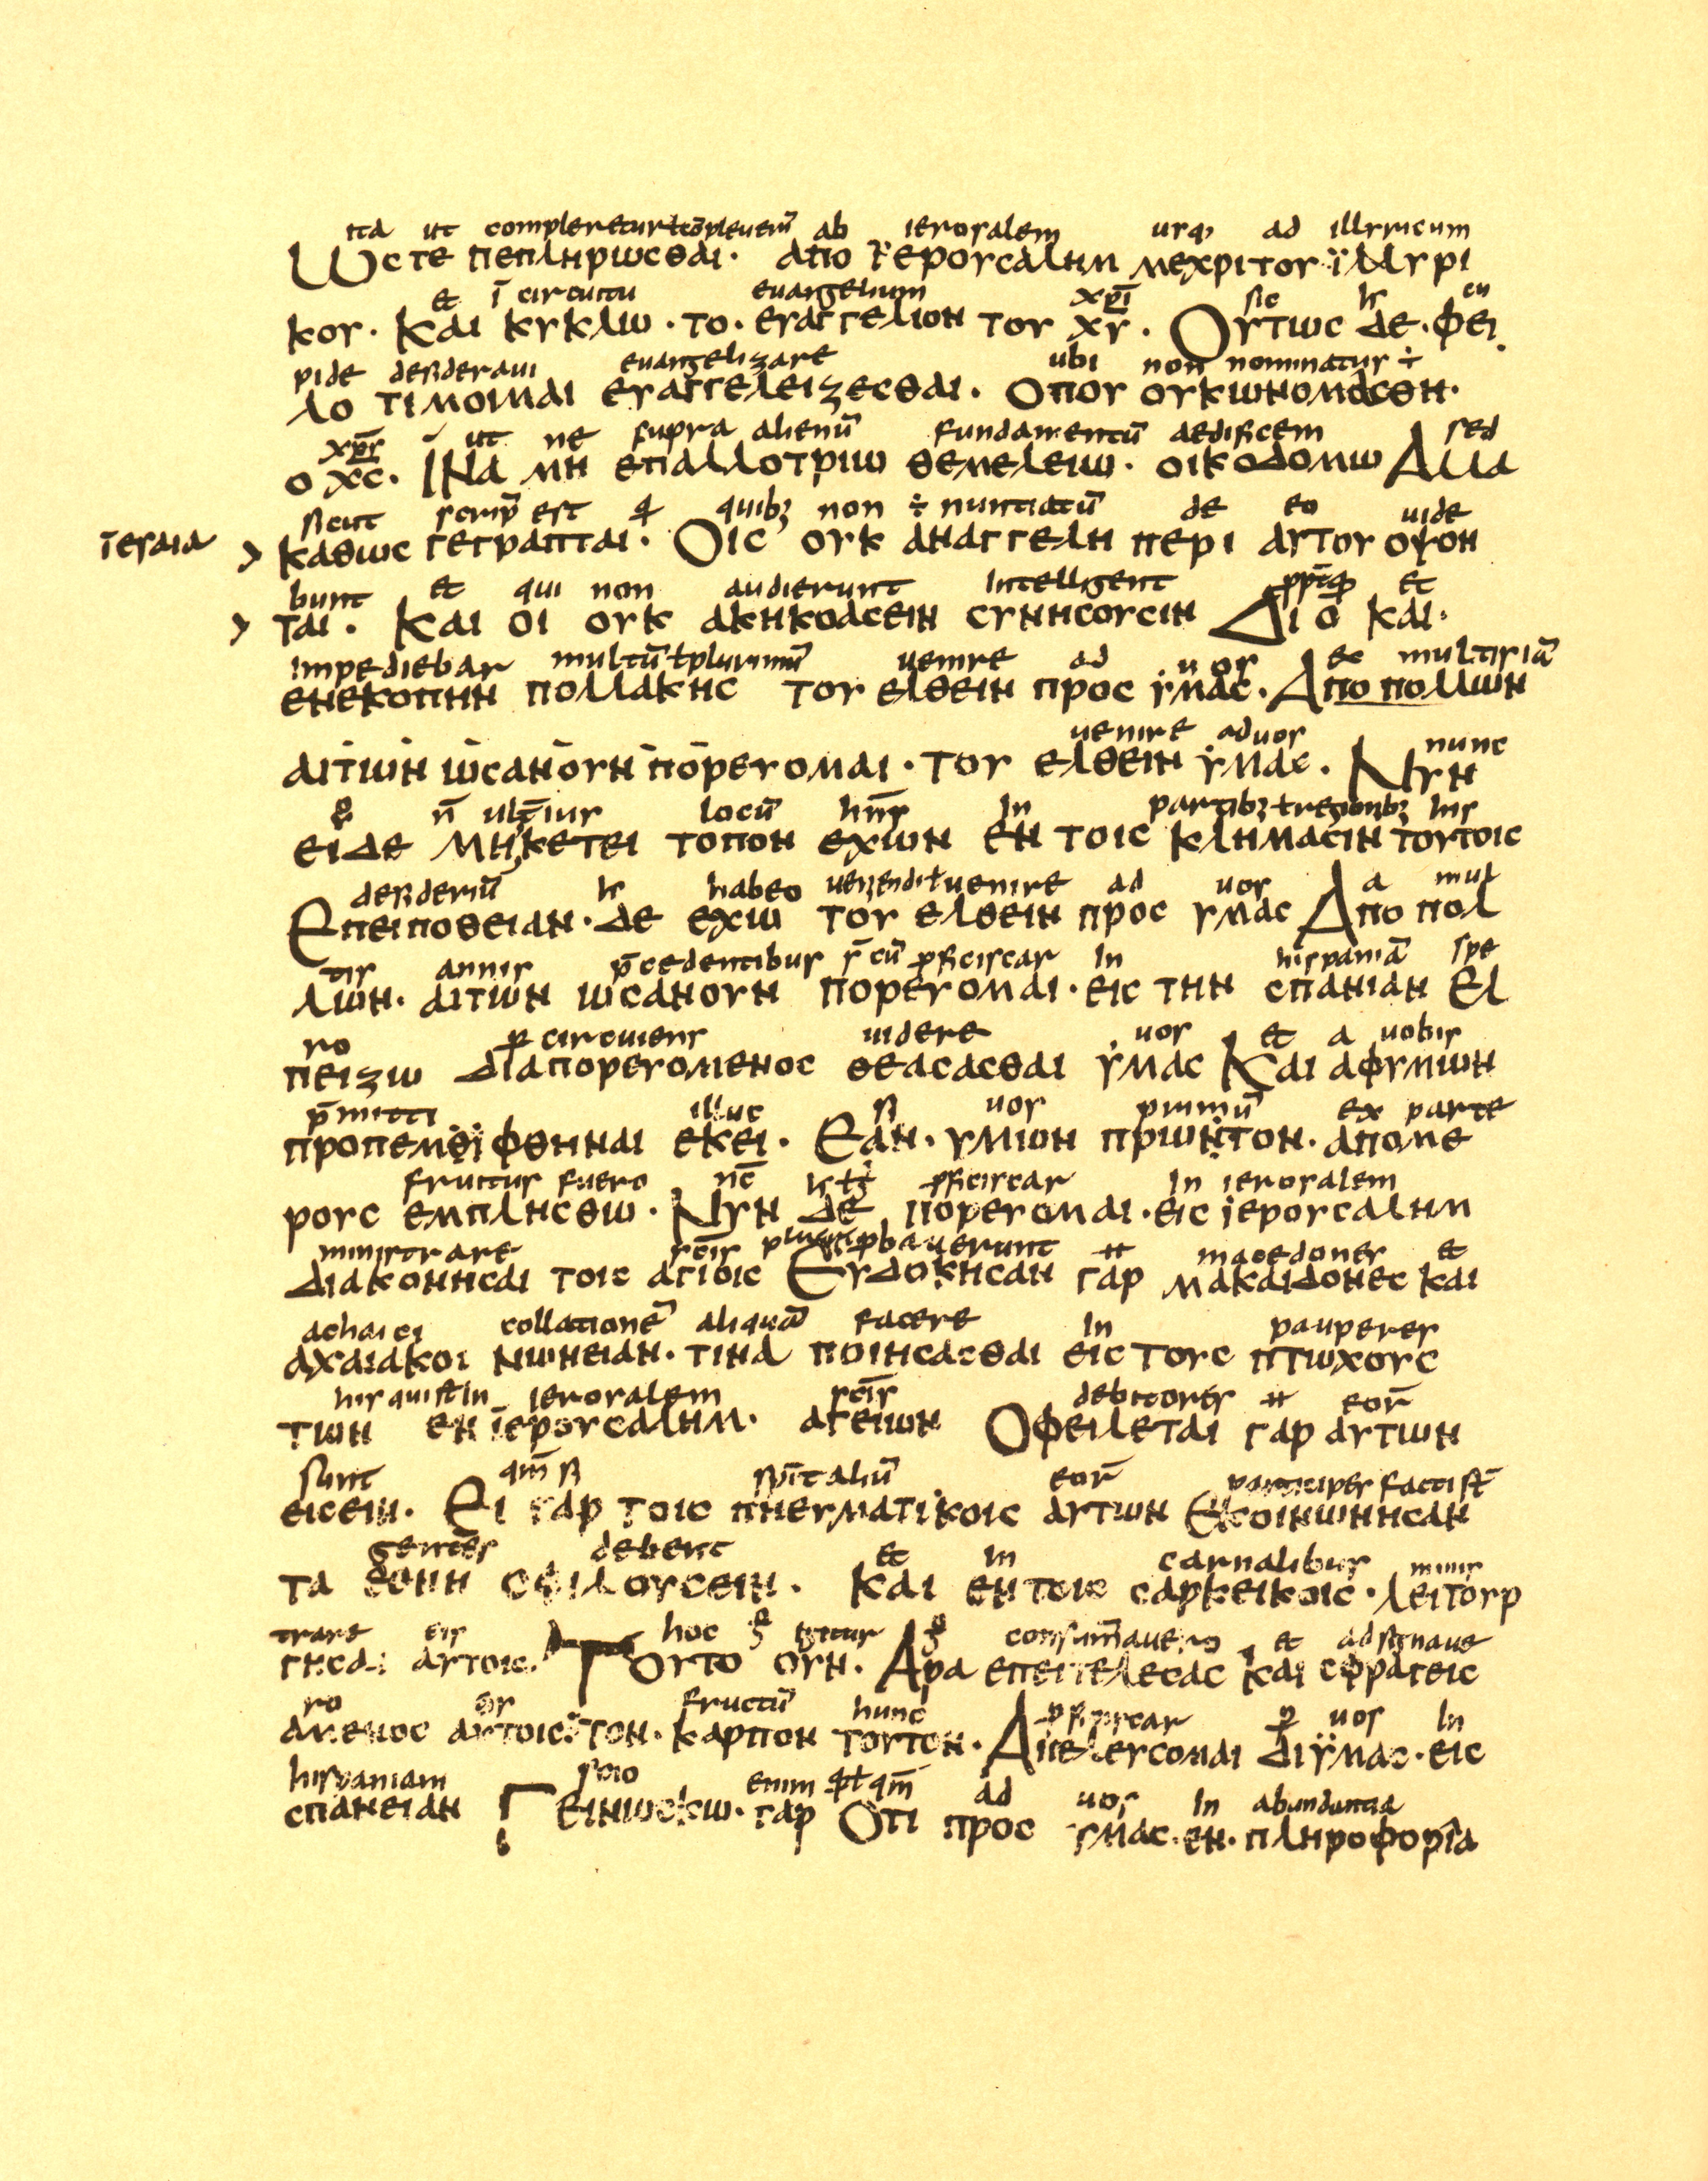 ita ut compleretur ł cōpleuerī ab ierosalem usq; ad illyricum
Ωστε πεπληρωσθαι· απο ϊερουσαλημ μεχρι του ϊλλυρι
et ī circuitu euangelium xp̄ī sic hr cu
κου· Και κυκλω· το· ευαγγελιον του χ̅υ̅· Ουτως δε· φει
pide desideraui euangelizare ubi non nominatus ÷
λο τιμουμαι ευαγγελειζεσθαι· οπου ουκ ωνομασθη·
xp̄s ut ne supra alienū fundamentū aedificem sed
ο χ̅ς̅· Ινα μη επ αλλοτριω θεμελειω· οικοδομω Αλλα
sicut scrip̄ est quib; non ÷ nuntiatū de eo uide
ïesaia
> καθως γεγραπται· Οις ουκ αναγγελη περι αυτου οψον
bunt et qui non audierunt intelligent et
> ται· Και οι ουκ ακηκοασειν συνησουσιν Διο και·
impediebar multū ł plurimū uenire ad uos ec multis iā
ενεκοπην πολλακης του ελθειν προς υμας· Απο πολλων
uenire ad uos nunc
αιτων ωσανουν πορευομαι· του ελθειν υμας· Νυν
n̄ ulterius locū hn̄s in partib; ł regionib; his
ειδε μηκετει τοπον εχων εν τοις κλημασιν τουτοις
desideriū hr habeo ueniendi ł uenire ad uos a mul
Επειποθειαν· δε εχω του ελθειν προς υμας Απο πολ
tis annis p̄cedentibus s̄ cū proficiscar in hispaniā spe
λων· αιτων ωσανουν πορευομαι· εις την σπανιαν Ελ
ro p circuiens uidere uos et a uobis
πειζω διαπορευομενος θεασασθαι υμας Και αφ υμων
p̄mitti illuc si uos primū ex parte
προπεμθιφθηναι εκει· Εαν· υμιων πρωντον· απο με
fructus fuero nc̄ proficiscar in ierosalem
ρους εμπλησθω· Νυν δε πορευομαι· εις ιερουσαλημ
ministrare sc̄is pbauerunt macedones et
διακονησαι τοις αγιοις Ευδοκησαν γαρ μακαιδονες και
achaici collationē aliquā facere in pauperes
αχαιακοι νωνειαν· τινα ποιησασθαι εις τους πτωχους
his qui st̄ in ierosalem sc̄is debitores eor̄
των εν ϊερουσαλημ· αγειων Οφειλεται γαρ αυτων
sunt qm̄ si sp̄italiū eor̄ participes facti st̄
εισειν· Ει γαρ τοις πνευματικοις αυτων Εκοινωνησαν
gentēs debent et in carnalibus minis
τα εθνη οφιλουσειν· και εν τοις σαρκεικοις· λειτουρ
trare eis hoc igitur consum̄auero et adsignaue
γησαι αυτοις· Τουτο ουν· Αρα επειτελεσας και σφραγεις
ro eis fructū hunc proficiscar p uos in
αμενος αυτοις· τον· καρπον τουτον· Απελευσομαι δι ϋμας· εις
hispaniam scio enim ł qm̄ ad uos in abundantia
σπανειαν Γεινωσκω· γαρ Οτι προς υμας· εν· πληροφορια